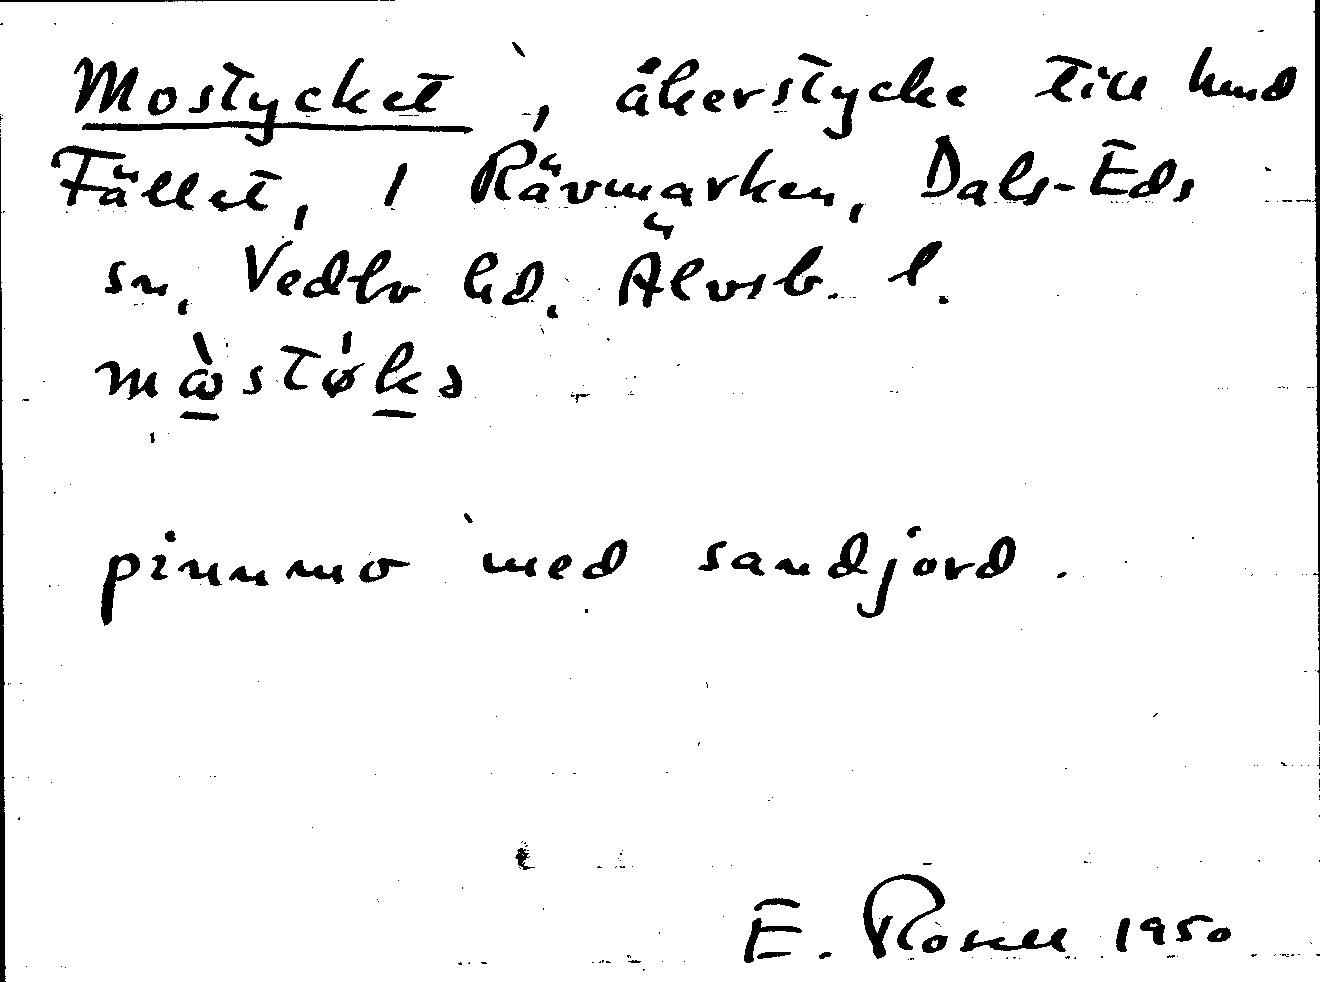 Mostycket, åkerstycke till hmd
Fället, 1 Rävmarken, Dals-Eds
sn, Vedbo hd. Älvsb. l.
mὼstǿkə
pinnmo med sandjord.
E. Rosell 1950